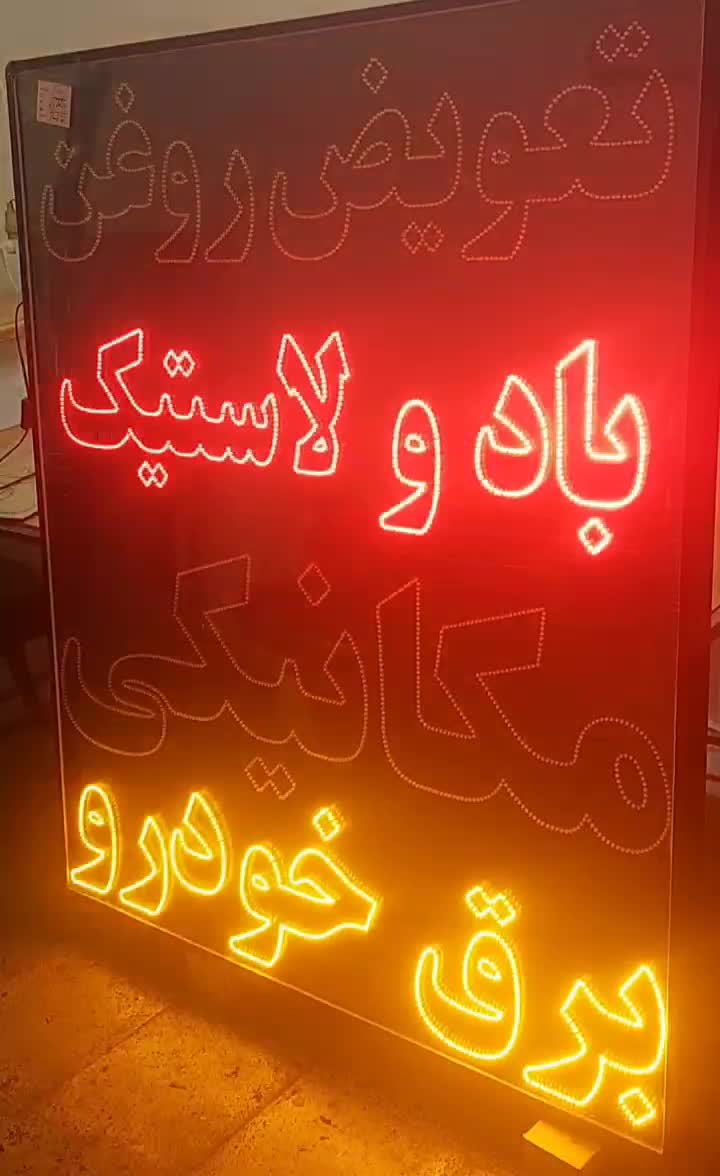 تعویض روغن
باد و لاستیک
مکانیکی
برق خودرو